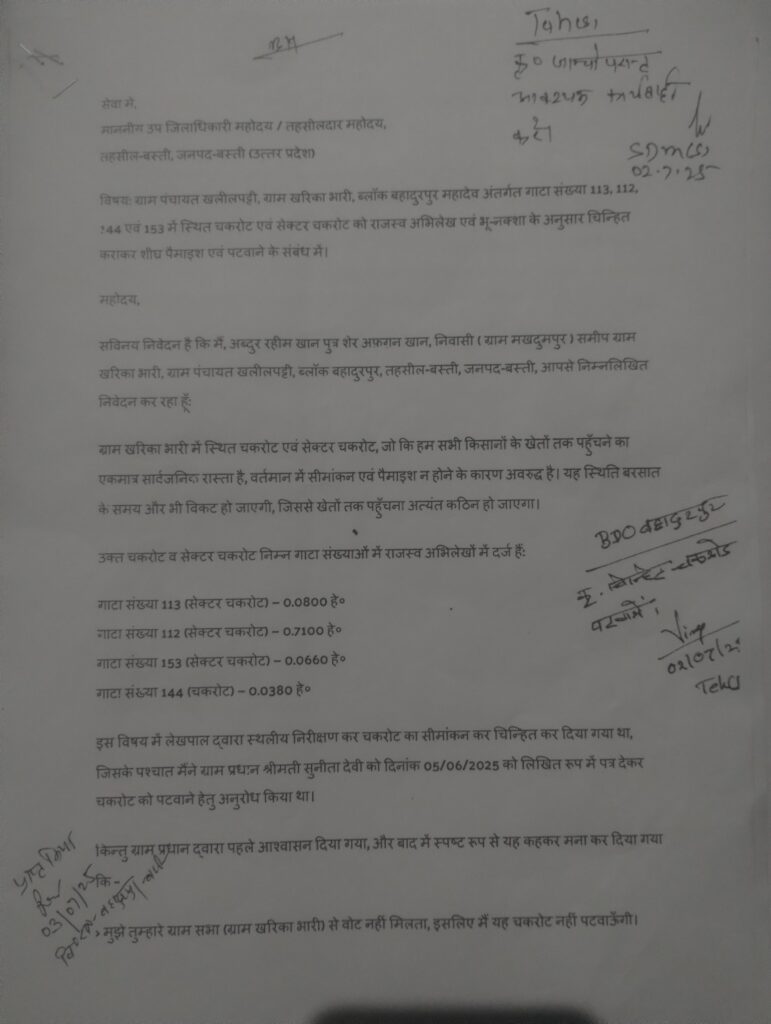 Tahsl
कृ० जान्चोपरान्त
आवश्यक कार्यवाही
करें
SDM(S)
02.7.25
सेवा में,
माननीय उप जिलाधिकारी महोदय / तहसीलदार महोदय,
तहसील-बस्ती, जनपद-बस्ती (उत्तर प्रदेश)
विषय: ग्राम पंचायत खलीलपट्टी, ग्राम खरिका भारी, ब्लॉक बहादुरपुर महादेव अंतर्गत गाटा संख्या 113, 112,
144 एवं 153 में स्थित चकरोट एवं सेक्टर चकरोट को राजस्व अभिलेख एवं भू-नक्शा के अनुसार चिन्हित
कराकर शीघ्र पैमाइश एवं पटवाने के संबंध में।
महोदय,
सविनय निवेदन है कि मैं, अब्दुर रहीम खान पुत्र शेर अफ़गन खान, निवासी ( ग्राम मखदुमपुर ) समीप ग्राम
खरिका भारी, ग्राम पंचायत खलीलपट्टी, ब्लॉक बहादुरपुर, तहसील-बस्ती, जनपद-बस्ती, आपसे निम्नलिखित
निवेदन कर रहा हूँ:
ग्राम खरिका भारी में स्थित चकरोट एवं सेक्टर चकरोट, जो कि हम सभी किसानों के खेतों तक पहुँचने का
एकमात्र सार्वजनिक रास्ता है, वर्तमान में सीमांकन एवं पैमाइश न होने के कारण अवरुद्ध है। यह स्थिति बरसात
के समय और भी विकट हो जाएगी, जिससे खेतों तक पहुँचना अत्यंत कठिन हो जाएगा।
उक्त चकरोट व सेक्टर चकरोट निम्न गाटा संख्याओं में राजस्व अभिलेखों में दर्ज हैं:
गाटा संख्या 113 (सेक्टर चकरोट) – 0.0800 हे०
गाटा संख्या 112 (सेक्टर चकरोट) – 0.7100 हे०
गाटा संख्या 153 (सेक्टर चकरोट) – 0.0660 हे०
गाटा संख्या 144 (चकरोट) – 0.0380 हे०
BDO बहादुरपुर
कृ. चिन्हित चकरोड
पटवायें।
02/07/25
इस विषय में लेखपाल द्वारा स्थलीय निरीक्षण कर चकरोट का सीमांकन कर चिन्हित कर दिया गया था,
जिसके पश्चात मैंने ग्राम प्रधान श्रीमती सुनीता देवी को दिनांक 05/06/2025 को लिखित रूप में पत्र देकर
चकरोट को पटवाने हेतु अनुरोध किया था।
किन्तु ग्राम प्रधान द्वारा पहले आश्वासन दिया गया, और बाद में स्पष्ट रूप से यह कहकर मना कर दिया गया
कि -
मुझे तुम्हारे ग्राम सभा (ग्राम खरिका भारी) से वोट नहीं मिलता, इसलिए मैं यह चकरोट नहीं पटवाऊँगी।
प्राप्त किया
03/07/25